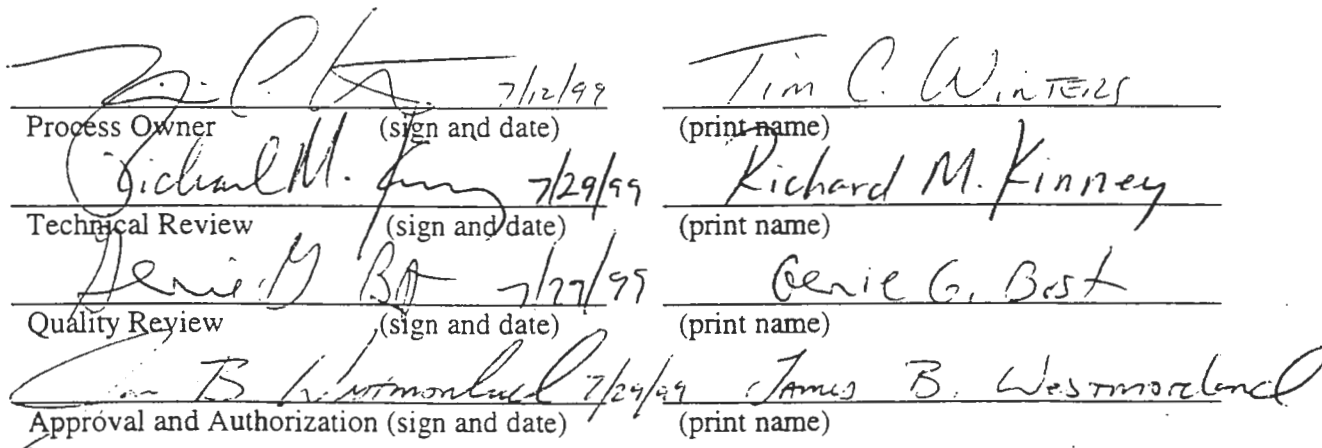 Tim C. 7/12/99 Tim C. WinTERS
Process Owner (sign and date) (print name)
Richard M. Kinney 7/29/99 Richard M. Kinney
Technical Review (sign and date) (print name)
Genie G Best 7/29/99 Genie G. Best
Quality Review (sign and date) (print name)
B Westmoreland 7/29/99 JAMES B. Westmoreland
Approval and Authorization (sign and date) (print name)